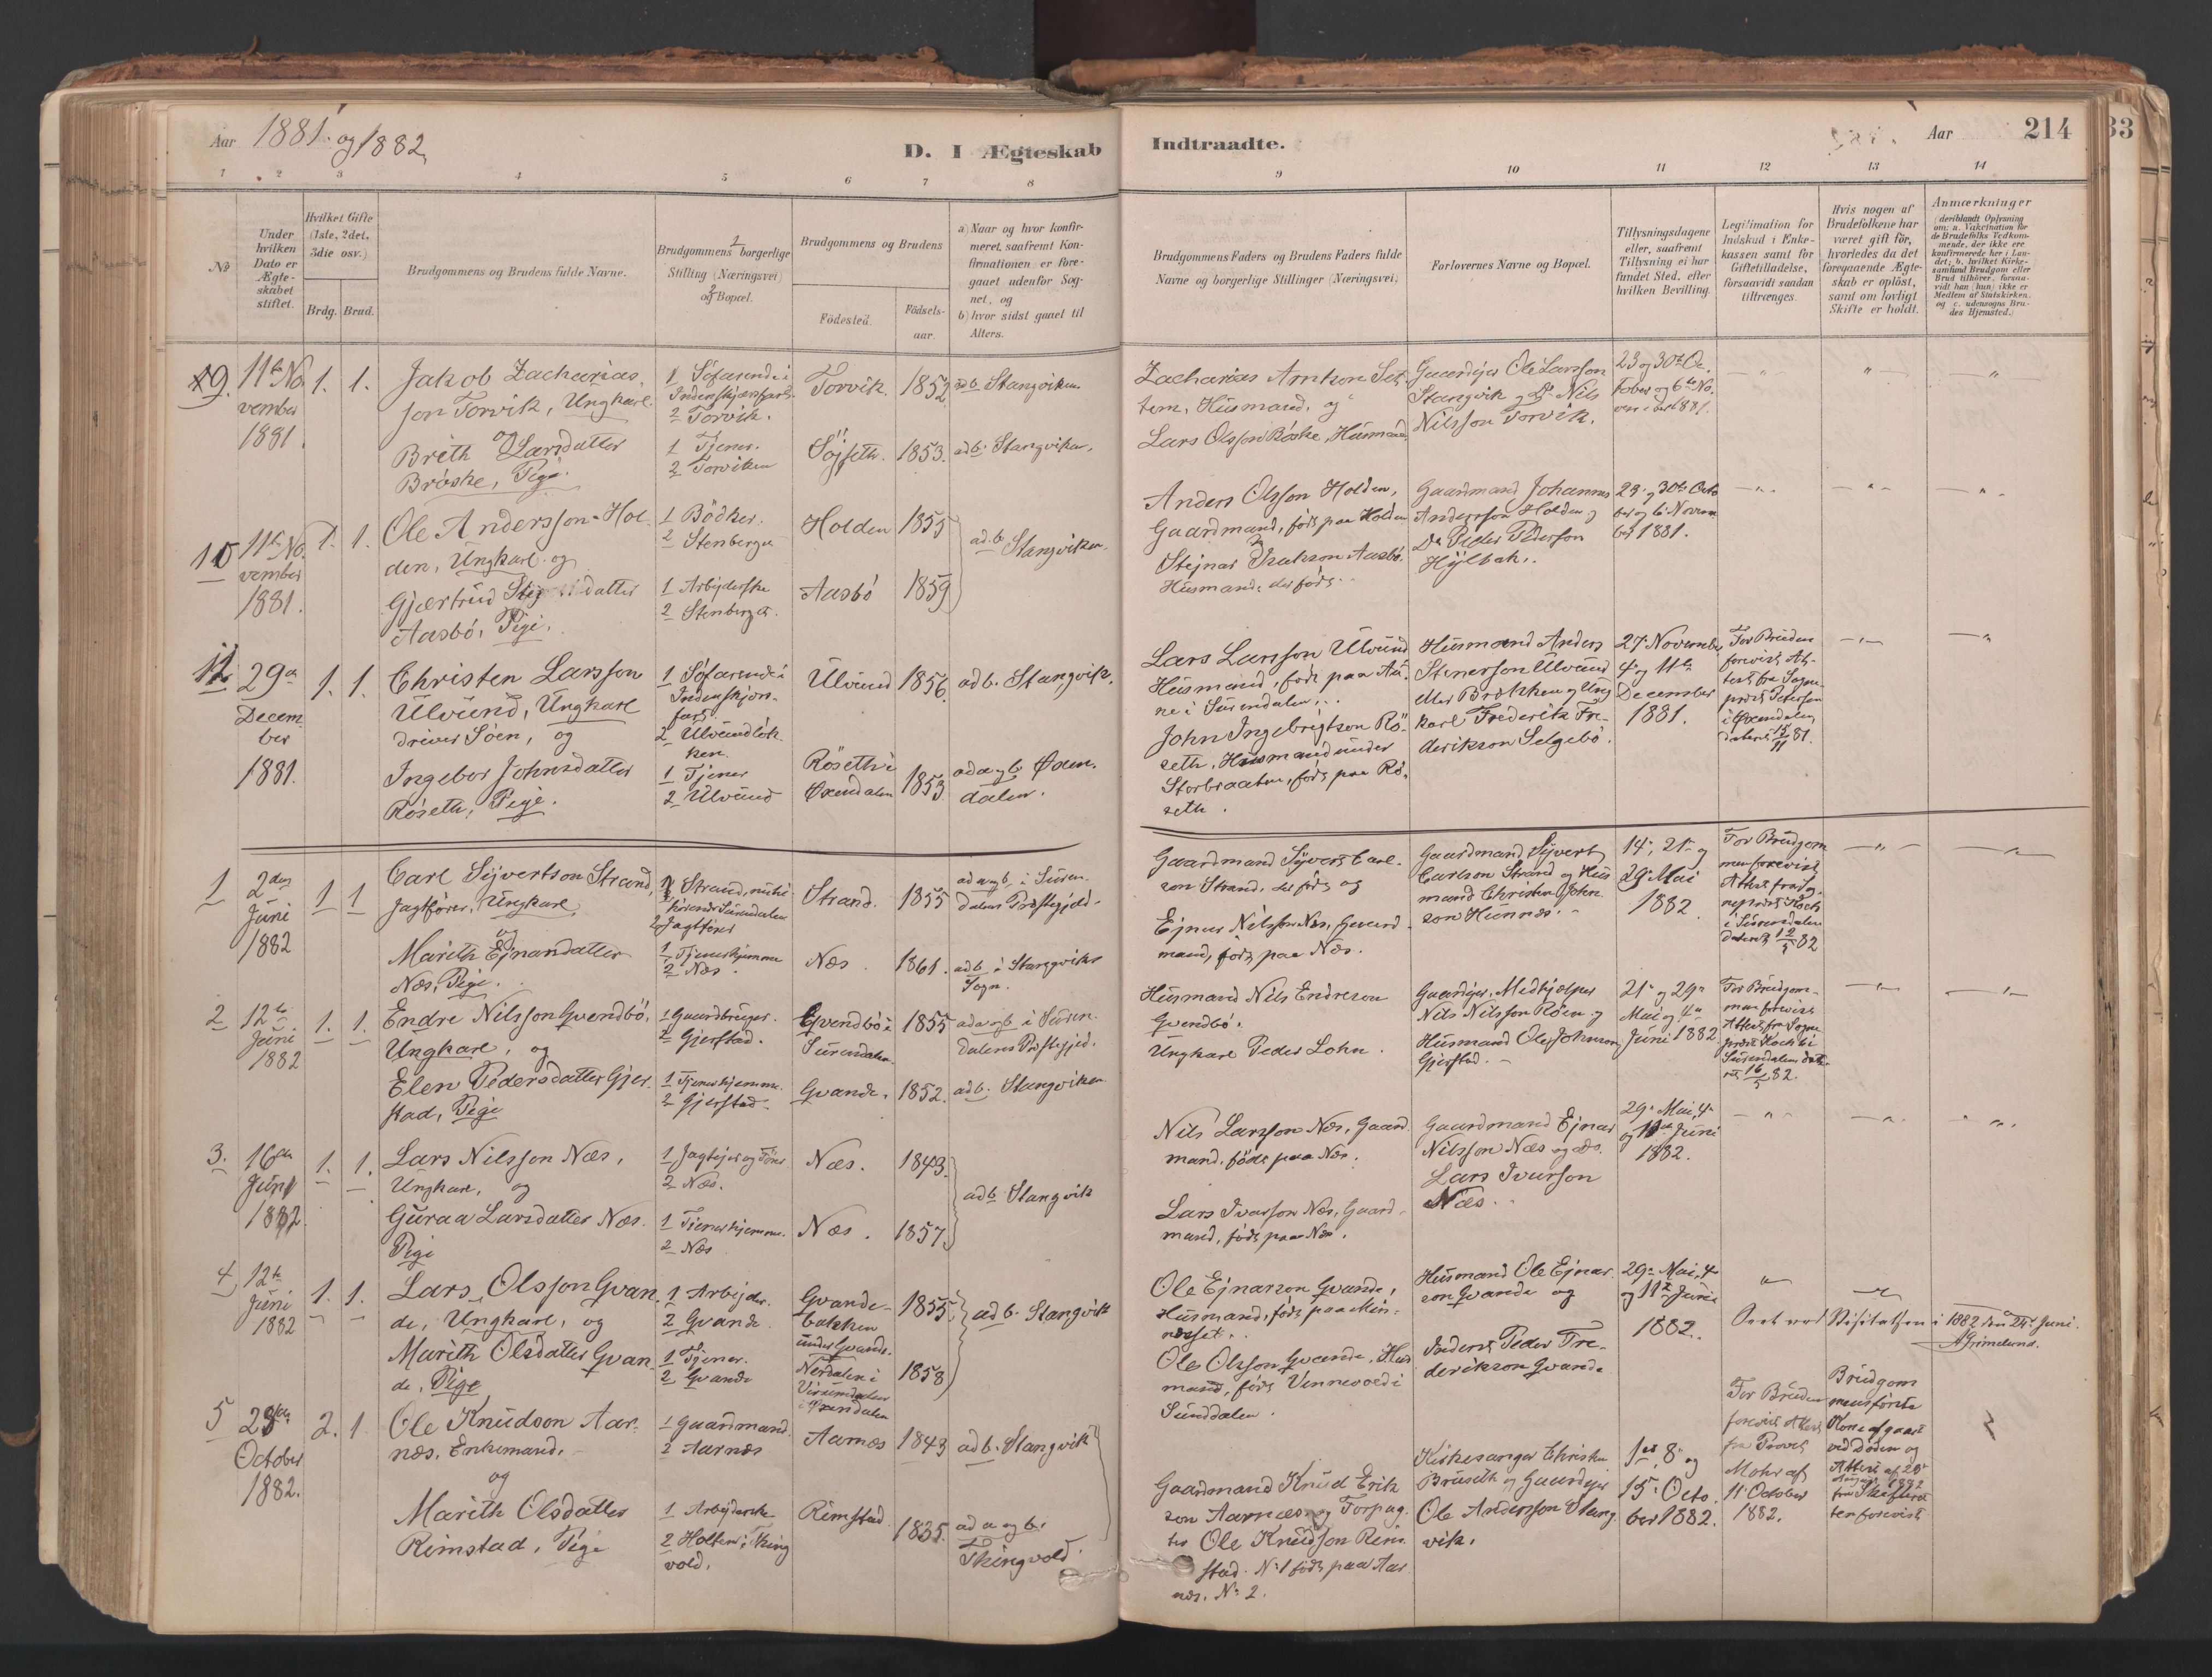 Aar 1881 og 1882
D. I Ægteskab Indtraadte.
Aar 214
33
1 2 3 4 5 6 7 8 9 10 11 12 13 14
No
Under hvilken Dato er Ægteskabet stiftet.
Hvilket Gifte (1ste, 2det, 3die osv.)
Brdg. Brud.
Brudgommens og Brudens fulde Navne.
1 Brudgommens borgerlige Stilling (Næringsvei) 2 og Bopæl.
Brudgommens og Brudens
Födested.
Födsels-aar.
a) Naar og hvor konfir-
meret, saafremt Kon-
firmationen er fore-
gaaet udenfor Sog-
net, og
b) hvor sidst gaaet til
Alters.
Brudgommens Faders og Brudens Faders fulde
Navne og borgerlige Stillinger (Næringsvei)
Forlovernes Navne og Bopæl.
Tillysningsdagene
eller, saafremt
Tillysning ei har
fundet Sted, efter
hvilken Bevilling.
Legitimation for
Indskud i Enke-
kassen samt for
Giftetilladelse,
forsaavidt saadan
tiltrænges.
Hvis nogen af
Brudefolkene har
været gift för,
hvorledes da det
foregaaende Ægte-
skab er oplöst,
samt om lovligt
Skifte er holdt.
Anmærkninger
(deriblandt Oplysning
om: a. Vakcination for
de Brudefolks Vedkom-
mende, der ikke ere
konfirmerede her i Lan-
det; b. hvilket Kirke-
samfund Brudgom eller
Brud tilhörer, forsaa-
vidt han (hun) ikke er
Medlem af Statskirken,
og c. udensogns Bru-
des Hjemsted.)
9. 11te No
vember
1881.
1. 1.
Jakob Zacharias-
son Torvik, Ungkarl
og
Brith Larsdatter
Brøske, Pige.
1 Søfarende i
Indenskjærsfart
2 Torvik.
1 Tjener.
2 Torviken
Torvik. 1852 adb. Stangviken
Söjseth. 1853. adb. Stangviken.
Zacharias
tem, Husmand, og
Lars Olsson Røske, Husmand
Gaardejer Ole Larsson
Stangvik og Do Nils
Nilsson Torvik.
23 og 30te Oc
tober og 6te No
vember 1881.
10 11te No
vember
1881.
1. 1.
Ole Andersson Hol-
den, Ungkarl og
Gjærtrud datter
Aasbö, Pige.
1 Bödker.
2 Stenberget
1 Arbejderske
2 Stenberget.
Holden 1855
Aasbö 1859
adb. Stangviken.
Anders Olsson Holden,
Gaardmand, födt paa Holden
Stejnar Isakson Aasbö.
Husmand, der födt.
Gaardmand Johannes
Andersson Holden og
Do Peder Pederson
Höjlbak.
23. og 30te Octo
ber og 6. Novem
ber 1881.
11. 29de
Decem
ber
1881.
1. 1.
Christen Larsson
Ulvund, Ungkarl
driver Söen, og
Ingebor Johnsdatter
Röseth, Pige.
1 Söfarende i
Indenskjærs-
fart
2 Ulvundlök-
ken.
1 Tjener
2 Ulvund
Ulvund 1856. adb. Stangvik.
Röseth i
Øxendalen 1853 ad a og b Øxen-
dalen.
Lars Larsson Ulvund
Husmand, födt paa Au-
ne i Surendalen.
John Ingebrigtson Rö-
seth, Husmand under
Storbraaten, födt paa Rö-
seth.
Husmand Anders
Stenerson Ulvund
eller Brækken og Ung
karl Frederik Fre-
derikson Selgebö.
27. November
4. og 11te
December
1881.
For Bruden
forevist At-
test fra Sogne-
præst Petersen
i Øxendalen
dateret 15/11 81.
1 2den
Juni
1882
1 1
Carl Sijvertson Strand,
Jagtförer, Ungkarl,
og
Marith Ejnarsdatter
Næs, Pige.
Strand,
Surendalen
2 Jagtförer
1 Tjener hjemme
2 Næs.
Strand. 1855
Næs. 1861.
ad a og b i Suren-
dalens Præstegjeld.
adb i Stangviks
Sogn.
Gaardmand Sijvert Carl-
son Strand, der födt og
Ejnar Nilsson Næs, Gaard
mand, födt paa Næs.
Gaardmand Sijvert
Carlson Strand og Hus
mand Christen John-
son Hunnæs.
14., 21. og
29. Mai
1882.
For Brudgom
men forevist
Attest fra Sog-
nepræst Koch
i Surendalen
dateret 12/5 82
2 12te
Juni
1882
1. 1.
Endre Nilsson Qvendbö,
Ungkarl, og
Elen Pedersdatter Gjer-
stad, Pige
1 Gaardbruger.
2 Gjerstad.
1 Tjener hjemme.
2 Gjerstad.
Qvendbö i
Surendalen 1855
Qvande. 1852.
ad a og b i Suren-
dalens Præstegjeld.
adb. Stangviken
Husmand Nils Endreson
Qvendbö.
Ungkarl Peder Lohn.
Gaardejer, Medhjælper
Nils Nilsson Röen og
Husmand Ole Johnson
Gjerstad.
21. og 29.
Mai og 4.
Juni 1882
For Brudgom-
men forevist
Attest fra Sogne
præst Koch i
Surendalen date-
ret 16/5 82.
3. 16de
Juni
1882
1. 1.
Lars Nilsson Næs,
Ungkarl, og
Guraa Larsdatter Næs.
Pige
1 Jagtejer og Förer
2 Næs.
1 Tjener hjemme.
2 Næs
Næs. 1843.
Næs. 1857.
adb. Stangvik
Nils Larsson Næs, Gaard
mand, födt paa Næs.
Lars Ivarson Næs, Gaard-
mand, födt paa Næs.
Gaardmand Ejnar
Nilsson Næs og do.
Lars Ivarson
Næs.
29. Mai, 4.
og 11te Juni
1882.
4 12te
Juni
1882
1. 1.
Lars Olsson Qvan-
de, Ungkarl, og
Marith Olsdatter Qvan-
de, Pige
1 Arbejder.
2 Qvande.
1 Tjener.
2 Qvande
Qvande-
bakken
under Qvande. 1855
Nerdalen i
Virumdalen
i Øxendalen 1858
adb. Stangvik
Ole Ejnarson Qvande,
Husmand, födt paa Min-
næset.
Ole Olsson Qvande, Hus
mand, födt Vennevold i
Sunddalen.
Husmand Ole Ejnar-
son Qvande og
Inderst Peder Fre-
derikson Qvande
29. Mai, 4.
og 11te Juni
1882.
Seet ved Visitatsen i 1882 den 24. Juni.
AGrimelund.
5 28de
October
1882.
2. 1
Ole Knudson Aar-
næs, Enkemand,
og
Marith Olsdatter
Rimstad, Pige
1 Gaardmand
2 Aarnæs
1 Arbejderske
2 Holten i Thing
vold.
Aarnæs 1843 adb. Stangvik
Rimstad. 1835. ad a og b.
Thingvold.
Gaardmand Knud Erik
son Aarnæs og Forpag-
ter Ole Knudson Rim-
stad. No 1 födt paa Aar
næs. No 2.
Kirkesanger Christen
Bruseth og Gaardejer
Ole Andersson Stang
vik.
1ste, 8. og
15. Octo-
ber 1882.
For Bruden
forevist Attest
fra Provst
Mohr af
11. October
1882.
Brudgom
mens förste
Kone afgaaet
ved Döden og
Attest af 28.
August 1882
fra Skifteret
ten forevist